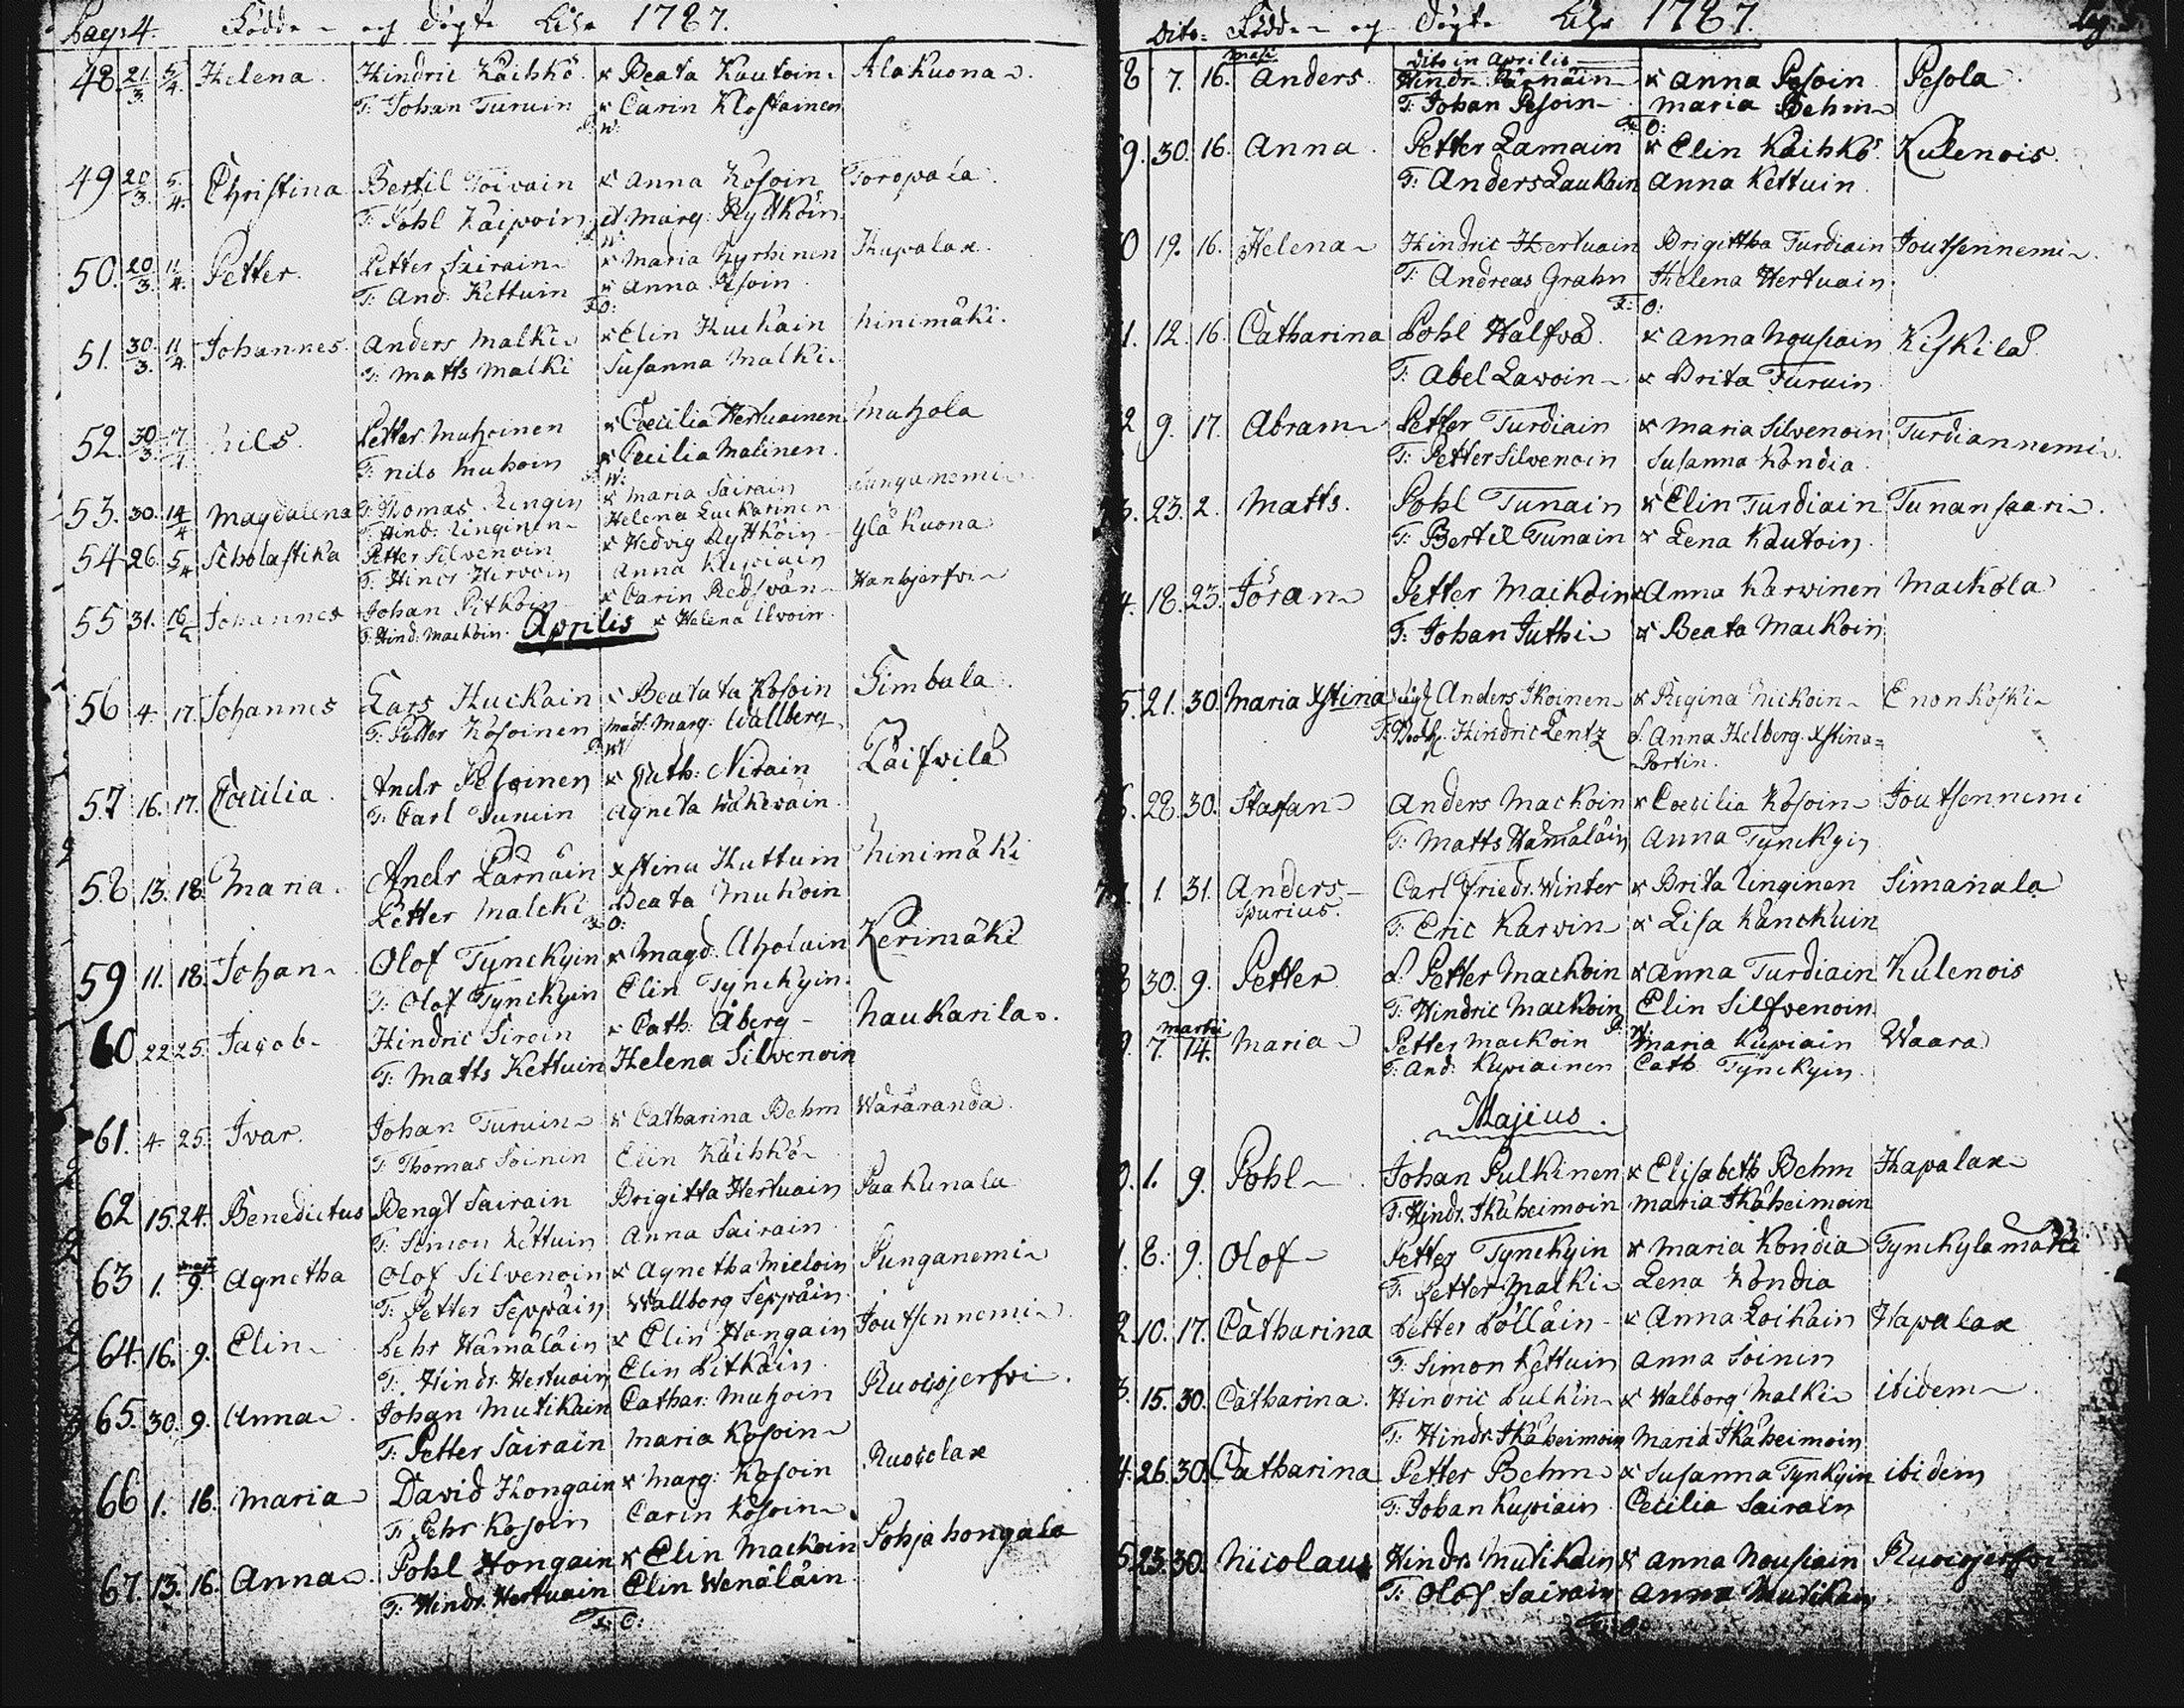 Pag: 4. Födde och döpte Åhr 1787.
48. 21/3. 5/4. Helena Hindric Käihkö x Beata Kautoin Alakuona
T: Johan Turuin x Carin Klostainen
49 20/3. 5/4. Christina Bertil Toivain x Anna Kosoin Toropala
T: Pohl Käipoin et Marg: Rytköin
50. 20/3. 11/4. Petter Petter Sairain x Maria Nyrhinen Hapalax
T: And: Kettuin x Anna Pesoin
T: O:
51. 30/3. 11/4. Johannes Anders Malki x Elin Huckain Ninimäki
T: Matts Malki Susanna Malki
52. 30/3. Nils Petter Muhoinen x Cæcilia Hertuainen Muhola
T: Nils Muhoin x Cecilia Malinen
53. 30. 14/4 Magdalena T: Thomas Linginn x Maria Sairain
T: Hind: Linginen Helena Luckarinen
54 26. 5/4 Scholastika Petter Silvenoin x Hedvig Rytköin Ylä Kuona
T: Hindr Hirvoin Anna Kupiain
55 31. 16/4 Johannes Johan Pitkoin x Carin Redsvän Hanhjerfvi
T: Hind: Mackoin x Helena Ilvoin
Aprilis
56 4. 17. Johannes Lars Huckain x Beatata Kosoin Simbala
T: Petter Kosoinen Mad: Marg: Wallberg
57 16. 17. Cæcilia Andr Pesoinen x Cath: Nirain Laifvila
T: Carl Turuin Agneta Wäkeväin
58 13. 18. Maria Andr Pärnäin xstina Huttuin Ninimäki
Petter Malcki Beata Muhoin
T: O:
59 11. 18. Johan Olof Tynckyin x Magd: Aholain Kerimäki
T: Olof Tynckyin Elin Tynckyin
60 22 25. Jacob Hindric Siroin x Cath: Åberg Naukarila
T: Matts Kettuin Helena Silvenoin
61. 4. 25. Ivar Johan Turuin x Catharina Behm Wäräranda
T: Thomas Soinin Elin Käihkö
62 15. 24. Benedictus Bengt Sairain Brigitta Hertuain Paakunala
T: Simon Kettuin Anna Sairain
63 1. maji 9. Agnetha Olof Silvenoin x Agnetha Mieloin Punganemi
T: Petter Seppäin Wallborg Seppäin
64. 16. 9. Elin Pehr Hämäläin x Elin Hongain Joutsennemi
T: Hindr. Hertuain Elin Pitkäin
65. 30. 9. Anna Johan Mutikain Cathar: Muhoin Ruocojerfvi
T: Petter Sairain Maria Kosoin
66 1. 16. Maria David Hongain x Marg: Kosoin Ruocolax
T: Pehr Kosoin Carin Kosoin
67. 13. 16. Anna Pohl Hongain x Elin Mackoin Pohja hongala
T: Hindr. Hertuain Elin Wenäläin
T: O:
Dito: Födde och döpte Åhr 1787.
dito in Aprilis
8 7. maji 16. Anders Hindr. Pärnäin x Anna Pesoin Pesola
T: Johan Pesoin Maria Behm
T: O:
9. 30. 16. Anna Petter Lamain x Elin Käihkö Kulenois
T: Anders Laukain Anna Kettuin
0 19. 16. Helena Hindric Hertuain Brigitha Turdiain Joutsennemi
T: Andreas Grahn Helena Hertuain
T: O:
1. 12. 16. Catharina Pohl Halfva x Anna Nousiain Kiskila
T: Abel Lavoin x Brita Turuin
2 9. 17. Abram Petter Turdiain x Maria Silvenoin Turdiannemi
T: Petter Silvenoin Susanna Kondia
3. 23. 2. Matts Pohl Tunain x Elin Turdiain Tunansaari
T: Bertil Tunain x Lena Kautoin
4. 18. 23. Jöran Petter Mackoin x Anna Karvinen Mackola
T: Johan Juthi x Beata Mackoin
5. 21. 30. Maria Xstina Anders Ikoinen x Regina Nickoin Enonkoski
Hindric Lentz d. Anna Helberg. Xstina
Portin
28. 30. Staffan Anders Mackoin x Cæcilia Kosoin Joutsennemi
T: Matts Hämäläin Anna Tynckyin
1. 31. Anders Carl Friedr. Winter x Brita Linginen Simanala
Spurius T: Eric Karvin x Lisa Kanckuin
8 30. 9. Petter d. Petter Mackoin x Anna Turdiain Kulenois
T: Hindric Mackoin Elin Silfvenoin
martii
7. 14. Maria Petter Mackoin Maria Kupiain Waara
T: And: Kupiainen Cath. Tynckyin
Majius
1. 9. Pohl Johan Pulkinen x Elisabeth Behm Hapalax
T: Hindr. Ikäheimoin Maria Ikäheimoin
8. 9. Olof Petter Tynckyin x Maria Kondia Tynckylämäki
T: Petter Malki Lena Kondia
2. 10. 17. Catharina Petter Pölläin x Anna Loikain Hapalax
T: Simon Kettuin Anna Soinin
3. 15. 30. Catharina Hindric Pulkin x Walborg Malki ibidem
T: Hindr. Ikäheimoin Maria Ikäheimoin
4. 26. 30. Catharina Petter Behm x Susanna Tynkyin ibidem
T: Johan Kupiain Cecilia Sairain
5. 23. 30. Nicolaus Hindr. Mutikain x Anna Nousiain Ruocojerfvi
T: Olof Sairain Anna Mutikain